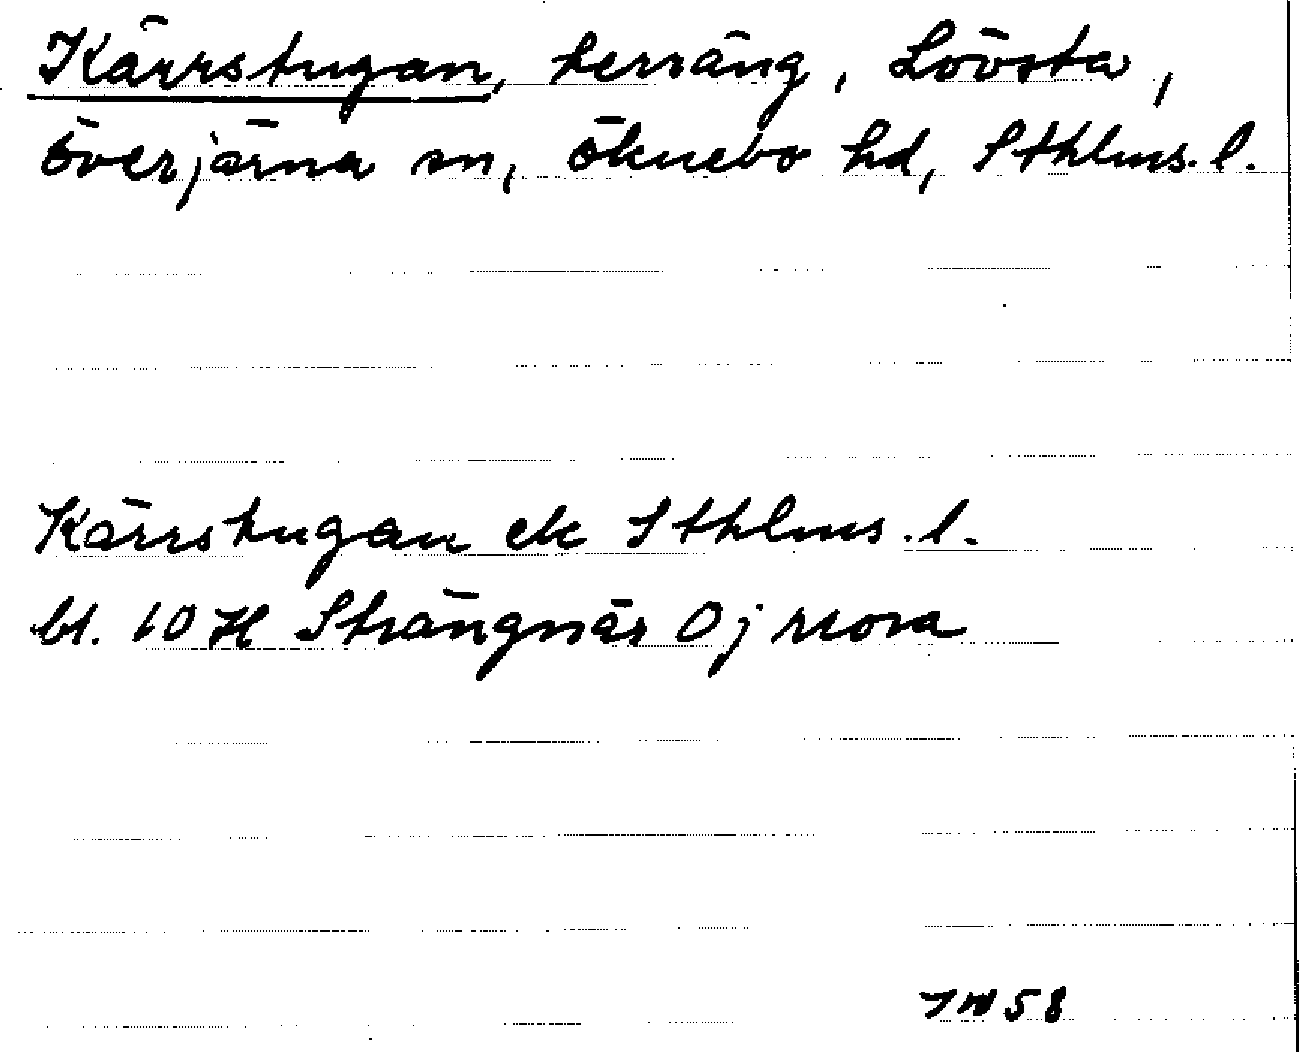 Kärrstugan, terräng, Lövsta,
Överjärna sn, Öknebo hd, Sthlms. l.
Kärrstugan ek Sthlms. l.
bl. 10 H Strängnäs 0 j Mora
JW 58